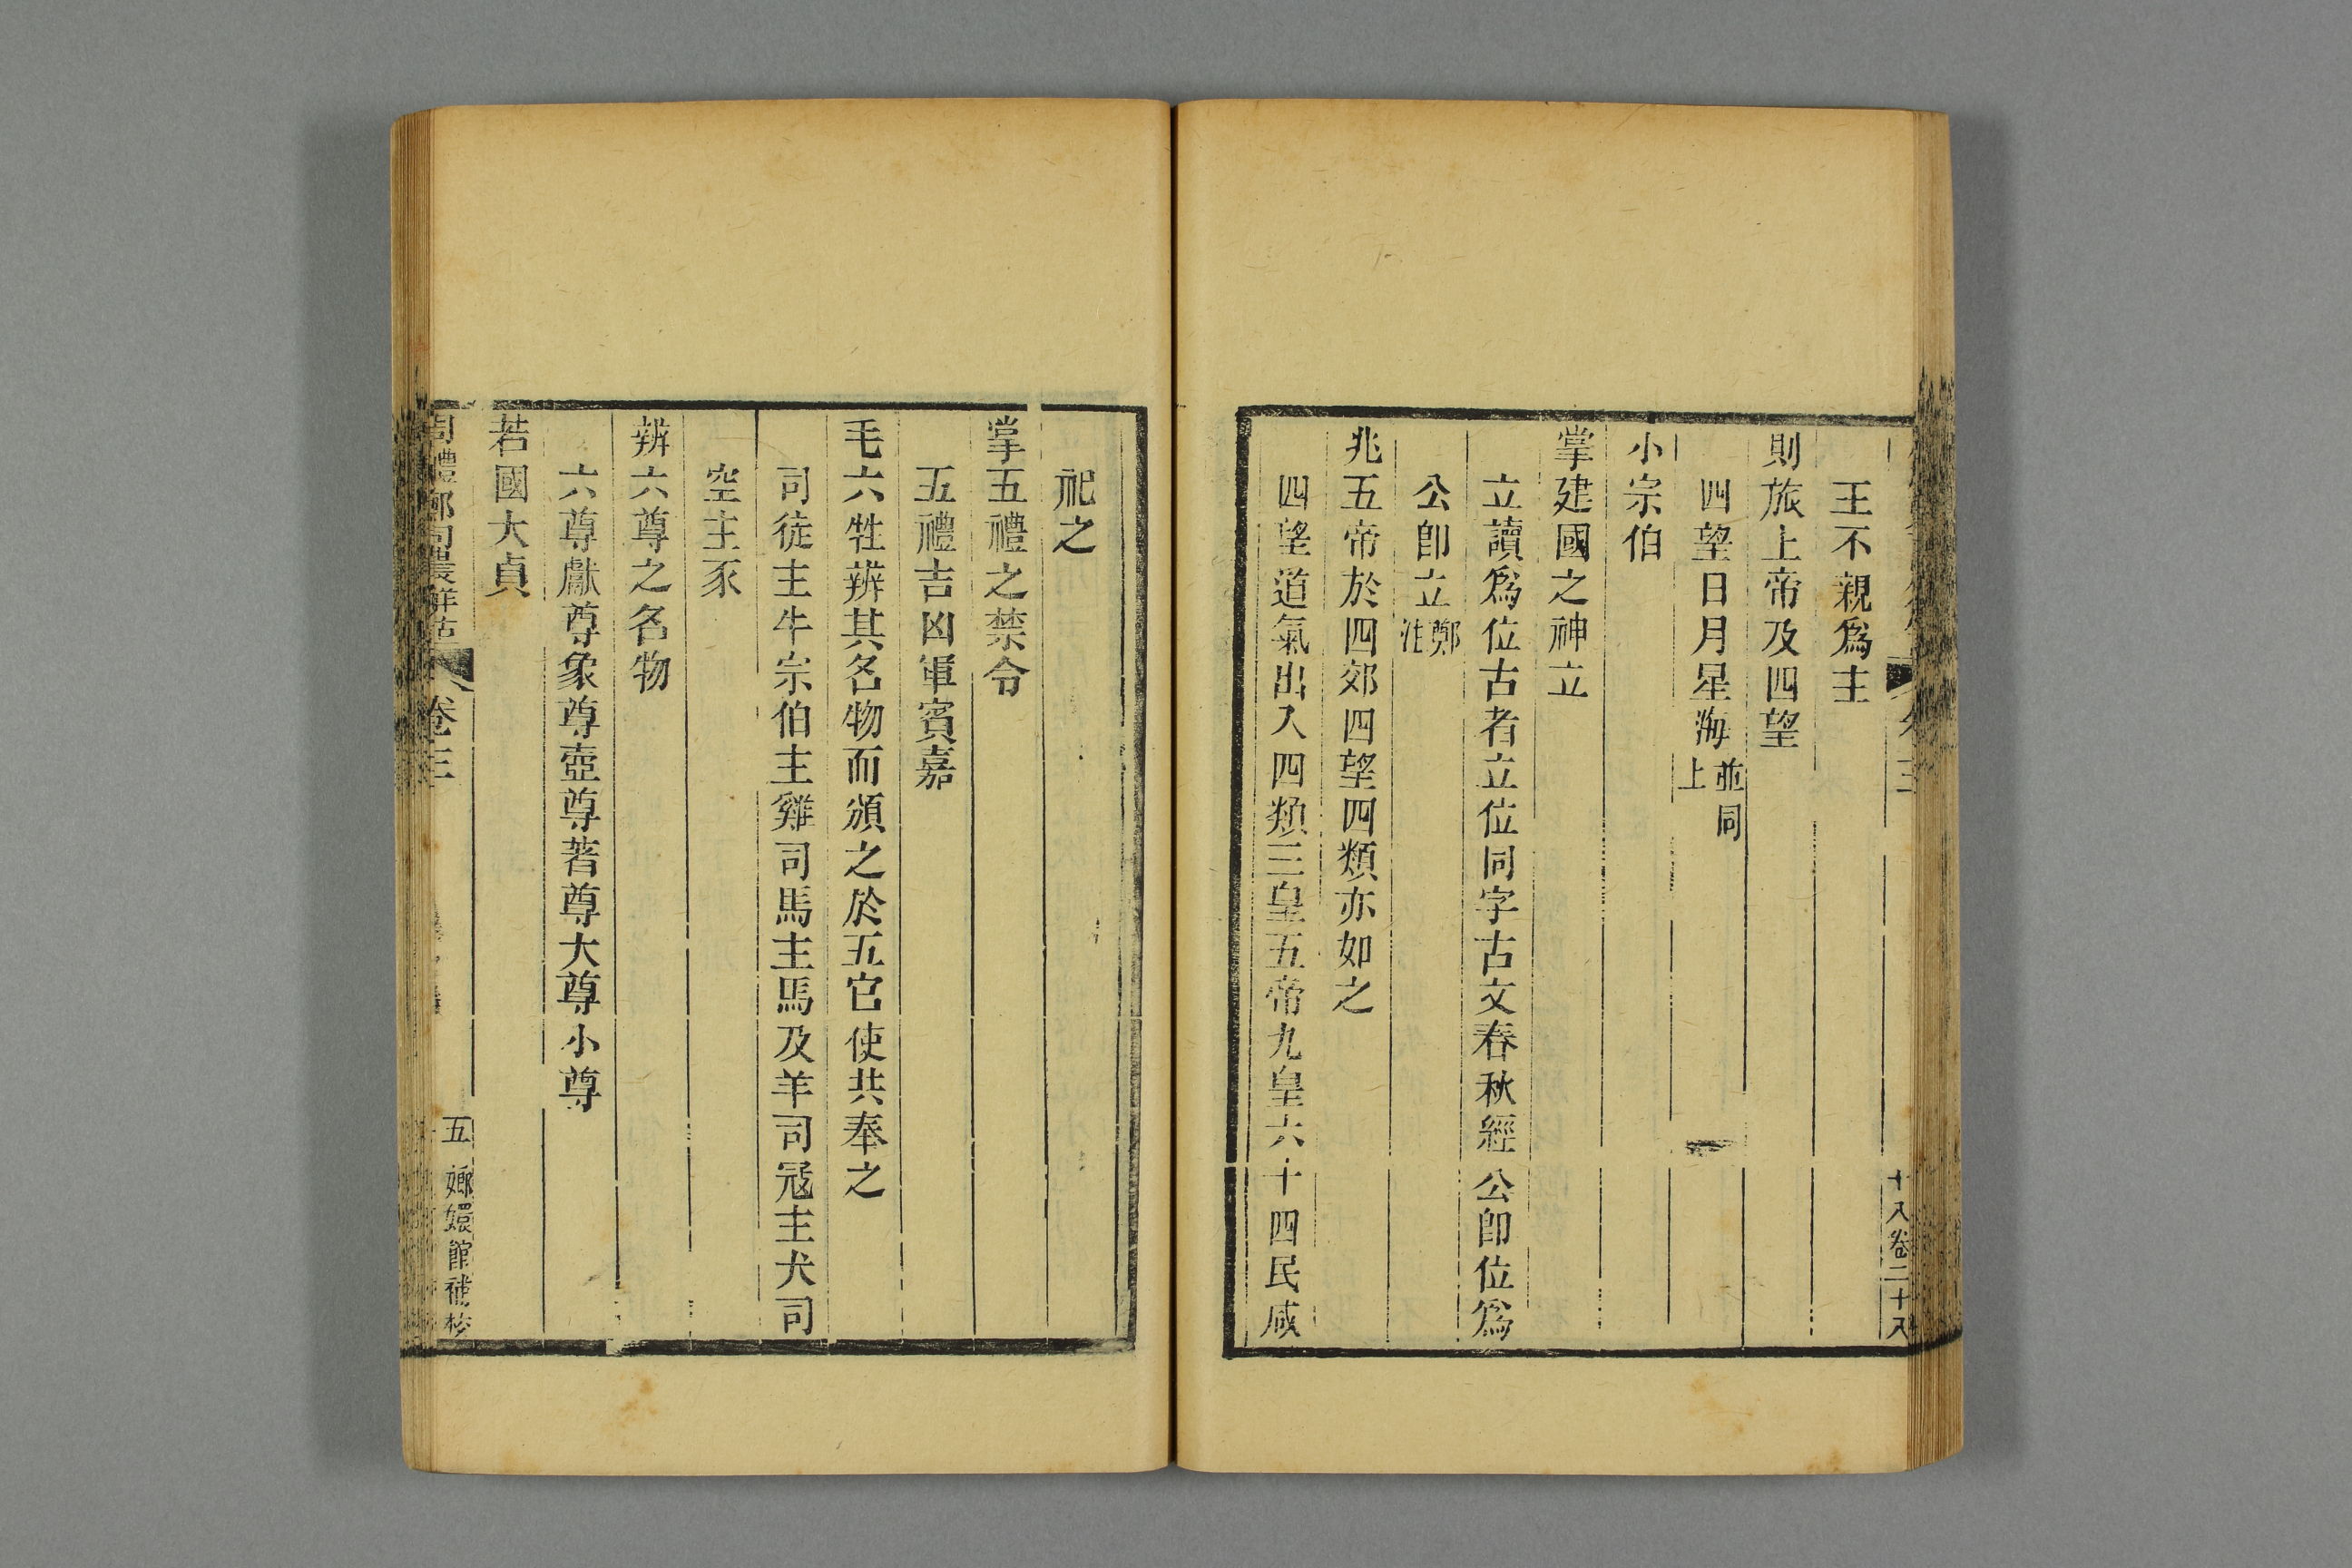 王不親爲主
則旅上帝及四望
四望日月星海並同上
小宗伯
掌建國之神立
立讀爲位古者立位同字古文春秋經公卽位爲
公卽立鄭注
兆五帝於四郊四望四類亦如之
四望道氣出入四類三皇五帝九皇六十四民咸
十八卷二十八
祀之
掌五禮之禁令
五禮吉凶軍賓嘉
毛六牲辨其名物而頒之於五官使共奉之
司徒主牛宗伯主雞司馬主馬及羊司冦主犬司
空主豕
辨六尊之名物
六尊獻尊象尊壺尊著尊大尊小尊
若國大貞
周禮鄭司農解詁 卷三
五 嫏嬛館補校